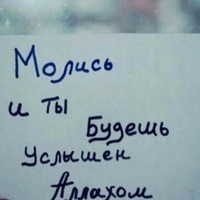 Молись
и ты
Будешь
Услышен
Аллахом